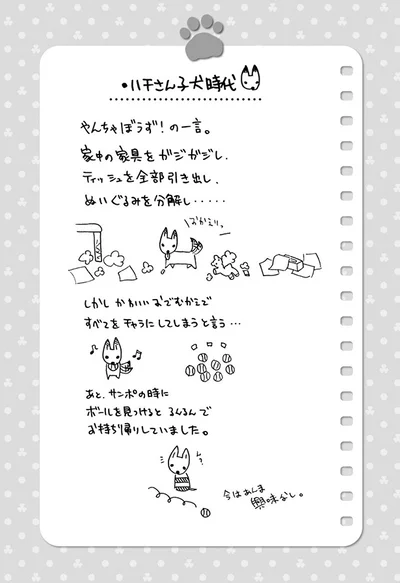 ・ハチさん子犬時代
やんちゃぼうず！の一言。
家中の家具をガジガジし、
ティッシュを全部引き出し、
ぬいぐるみを分解し・・・・・
おかえりっ
しかし かわいいおでむかえで
すべてを チャラにしてしまうと言う・・・
あと、サンポの時に
ボールを見つけると るんるんで
お持ち帰りしていました。
今はあんま
興味なし。